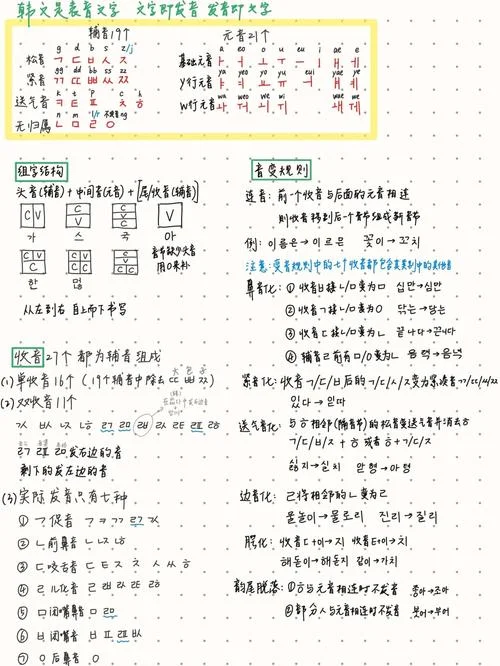 韩文是表音文字 文字即发音 发音即文字
辅音19个
g d b s z/j
松音 ㄱ ㄷ ㅂ ㅅ ㅈ
gg dd bb ss zz
紧音 ㄲ ㄸ ㅃ ㅆ ㅉ
k t p c h
送气音 ㅋ ㅌ ㅍ ㅊ ㅎ
n m l/r 不发音ng
无归属 ㄴ ㅁ ㄹ ㅇ
元音21个
a eo o u eu i ae e
基础元音 ㅏ ㅓ ㅗ ㅜ ㅡ ㅣ ㅐ ㅔ
ya yeo yo yu eui yae ye
Y行元音 ㅑ ㅕ ㅛ ㅠ ㅢ ㅒ ㅖ
wa weo wi wae we
W行元音 ㅘ ㅝ ㅟ ㅙ ㅞ
组字结构
头音(辅音)+中间音(元音)+[尾/收音(辅音)]
CV C V C V C V
가 스 국 아
音节缺少头音
用ㅇ来补
한 먼
从左到右 自上而下书写
收音27个 都为辅音组成
(1)单收音16个(19个辅音中除去ㄸ ㅃ ㅉ)
大包子
(2)双收音11个
ㄳ ㅄ ㄵ ㄶ ㄺ ㄻ ㄼ ㄽ ㄾ ㄿ ㅀ
ㄺ ㄿ ㄻ 发右边的音
剩下的发左边的音
(3)实际发音只有七种
① ㄱ促音 ㄱ ㅋ ㄲ ㄺ ㄳ
② ㄴ前鼻音 ㄴ ㄵ ㄶ
③ ㄷ咬舌音 ㄷ ㅌ ㅈ ㅊ ㅅ ㅆ ㅎ
④ ㄹ儿化音 ㄹ ㄼ ㄽ ㄾ ㅀ
⑤ ㅁ闭嘴鼻音 ㅁ ㄻ
⑥ ㅂ闭嘴音 ㅂ ㅍ ㄿ ㅄ
⑦ ㅇ后鼻音 ㅇ
音变规则
连音:前一个收音与后面的元音相连
则收音移到后一个音节组成新音节
例:이름은→이르믄 꽃이→꼬치
注意:变音规则中的七个收音都包含其类别中的其他音
鼻音化:①收音ㅂ接ㄴ/ㅁ变为ㅁ 십만→심만
②收音ㄱ接ㄴ/ㅁ变为ㅇ 닦는→당는
③收音ㄷ接ㄴ/ㅁ变为ㄴ 끝나다→끈나다
④辅音ㄹ前有ㅁ/ㅇ变为ㄴ 음력→음녁
紧音化:收音ㄱ/ㄷ/ㅂ后的ㄱ/ㄷ/ㅅ/ㅈ变为紧读音ㄲ/ㄸ/ㅆ/ㅉ
있다→읻따
送气音化:与ㅎ相邻(隔音节)的松音变送气音并消去ㅎ
ㄱ/ㄷ/ㅂ/ㅈ+ㅎ 或者ㅎ+ㄱ/ㄷ/ㅈ
싫지→실치
边音化:ㄹ将相邻的ㄴ变为ㄹ
물놀이→물로리 진리→질리
腭化:收音ㄷ+이→지 收音ㅌ+이→치
해돋이→해도지 같이→가치
韵尾脱落:①ㅎ与元音相连时不发音 좋아→조아
②部分ㅅ与元音相连时不发音 붓어→부어